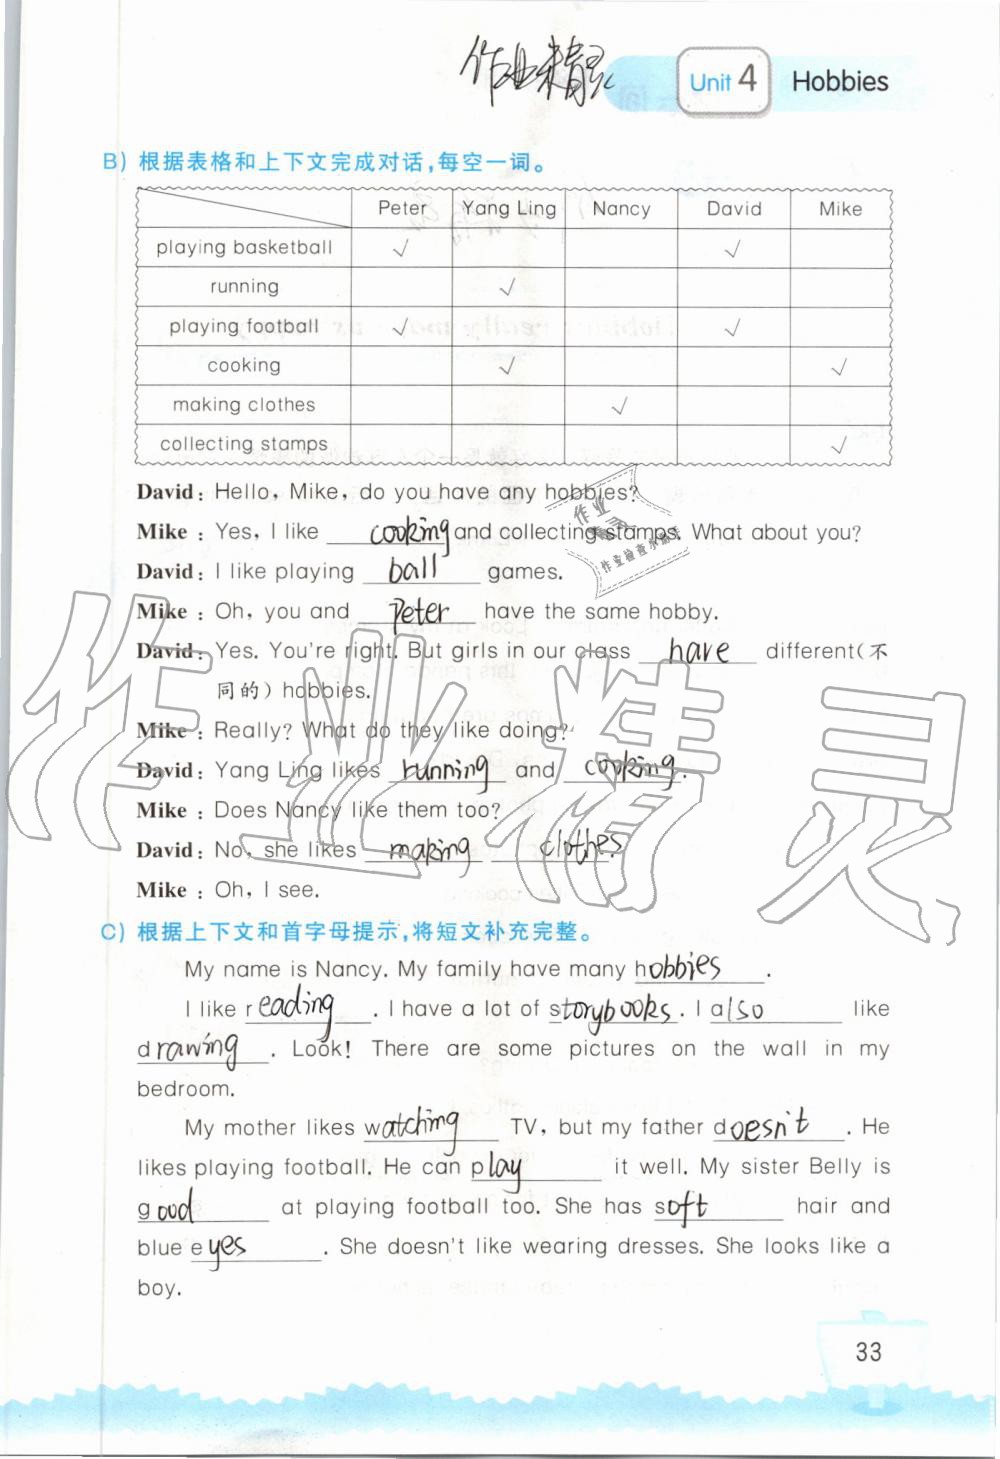 作业精灵
Unit 4 Hobbies
B) 根据表格和上下文完成对话,每空一词。
Peter Yang Ling Nancy David Mike
playing basketball ✓ ✓
running ✓
playing football ✓ ✓
cooking ✓ ✓
making clothes ✓
collecting stamps ✓
David: Hello, Mike, do you have any hobbies?
Mike: Yes, I like cooking and collecting stamps. What about you?
David: I like playing ball games.
Mike: Oh, you and Peter have the same hobby.
David: Yes. You're right. But girls in our class have different(不
同的) hobbies.
Mike: Really? What do they like doing?
David: Yang Ling likes running and cooking.
Mike: Does Nancy like them too?
David: No, she likes making clothes.
Mike: Oh, I see.
C) 根据上下文和首字母提示,将短文补充完整。
My name is Nancy. My family have many hobbies.
I like reading. I have a lot of storybooks. I also like
drawing. Look! There are some pictures on the wall in my
bedroom.
My mother likes watching TV, but my father doesn't. He
likes playing football. He can play it well. My sister Belly is
good at playing football too. She has soft hair and
blue eyes. She doesn't like wearing dresses. She looks like a
boy.
33
作业精灵
作业
精灵
作业检查小助手